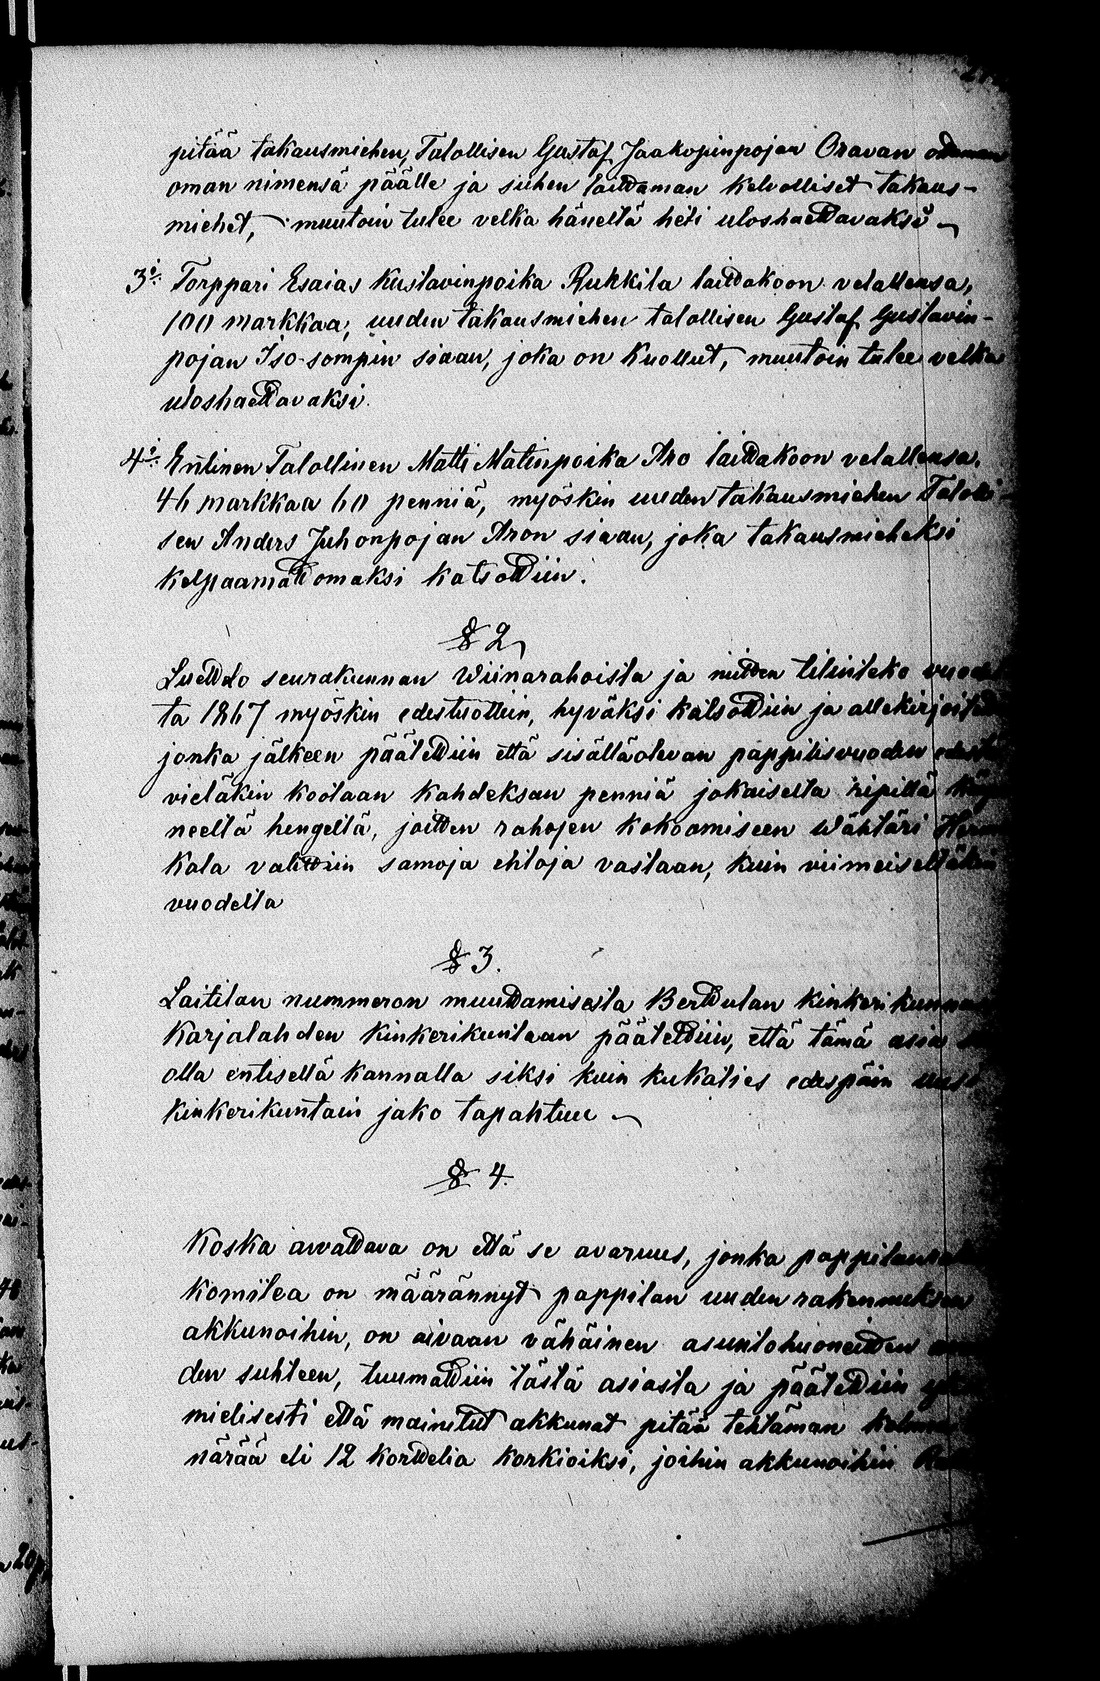 pitää takausmiehen, Talollisen Gustaf Jaakopinpojan Oravan ottaman
oman nimensä päälle ja siihen laittaman kelvolliset takaus-
miehet, muutoin tulee velka häneltä heti uloshaettavaksi
3:i Torppari Esaias Kustavinpoika Rukkila laittakoon velallensa,
100 markkaa, uuden takausmiehen talollisen Gustaf Gustavin-
pojan Iso-sompin siaan, joka on kuollut, muutoin tulee velka
uloshaettavaksi.
4:i Entinen Talollinen Matti Matinpoika Aro laittakoon velallensa,
46 markkaa 60 penniä, myöskin uuden takausmiehen Talolli-
sen Anders Juhonpojan Aron siaan, joka takausmieheksi
kelpaamattomaksi katsottiin.
§ 2
Luettelo seurakunnan Wiinarahoista ja niitten tilinteko
ta 1867 myöskin edestuottiin, hyväksi katsottiin ja
jonka jälkeen päätettiin että sisälläolevan pappilisvuoden
vieläkin kootaan kahdeksan penniä jokaiselta ripillä
neeltä hengeltä, joitten rahojen kokoomiseen Wähtäri
kala valittiin samoja ehtoja vastaan, kuin
vuodelta
§ 3.
Laitilan nummeron muuttamisesta Berttulan
Karjalahden kinkerikuntaan päätettiin, että tämä asia
olla entisellä kannalla siksi kuin kukaties edespäin uusi
kinkerikuntain jako tapahtuu
§ 4.
Koska arvattava on että se avaruus, jonka
komitea on määrännyt pappilan uuden rakennuksen
akkunoihin, on aivaan vähäinen asuntohuoneitten
den suhteen, tuumattiin tästä asiasta ja päätettiin
mielisesti että mainitut akkunat pitää tehtämän
närää eli 12 korttelia korkioiksi, joihin akkunoihin